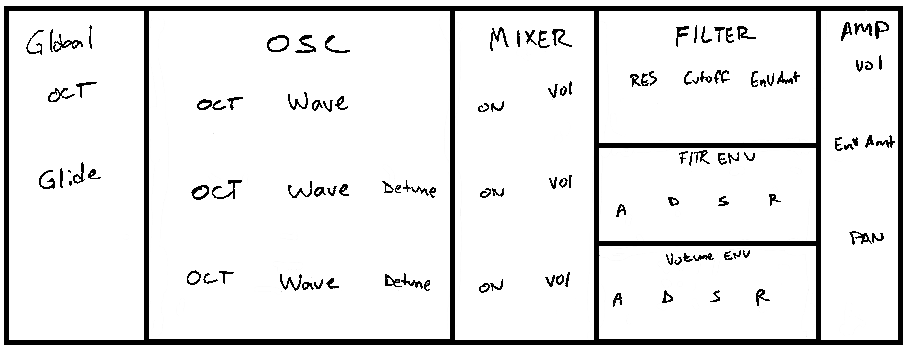 Global
OCT
Glide
OSC
OCT Wave
OCT Wave Detune
OCT Wave Detune
MIXER
ON Vol
ON Vol
ON Vol
FILTER
RES Cutoff Env Amt
FLTR ENV
A D S R
Volume ENV
A D S R
AMP
Vol
Env Amt
PAN